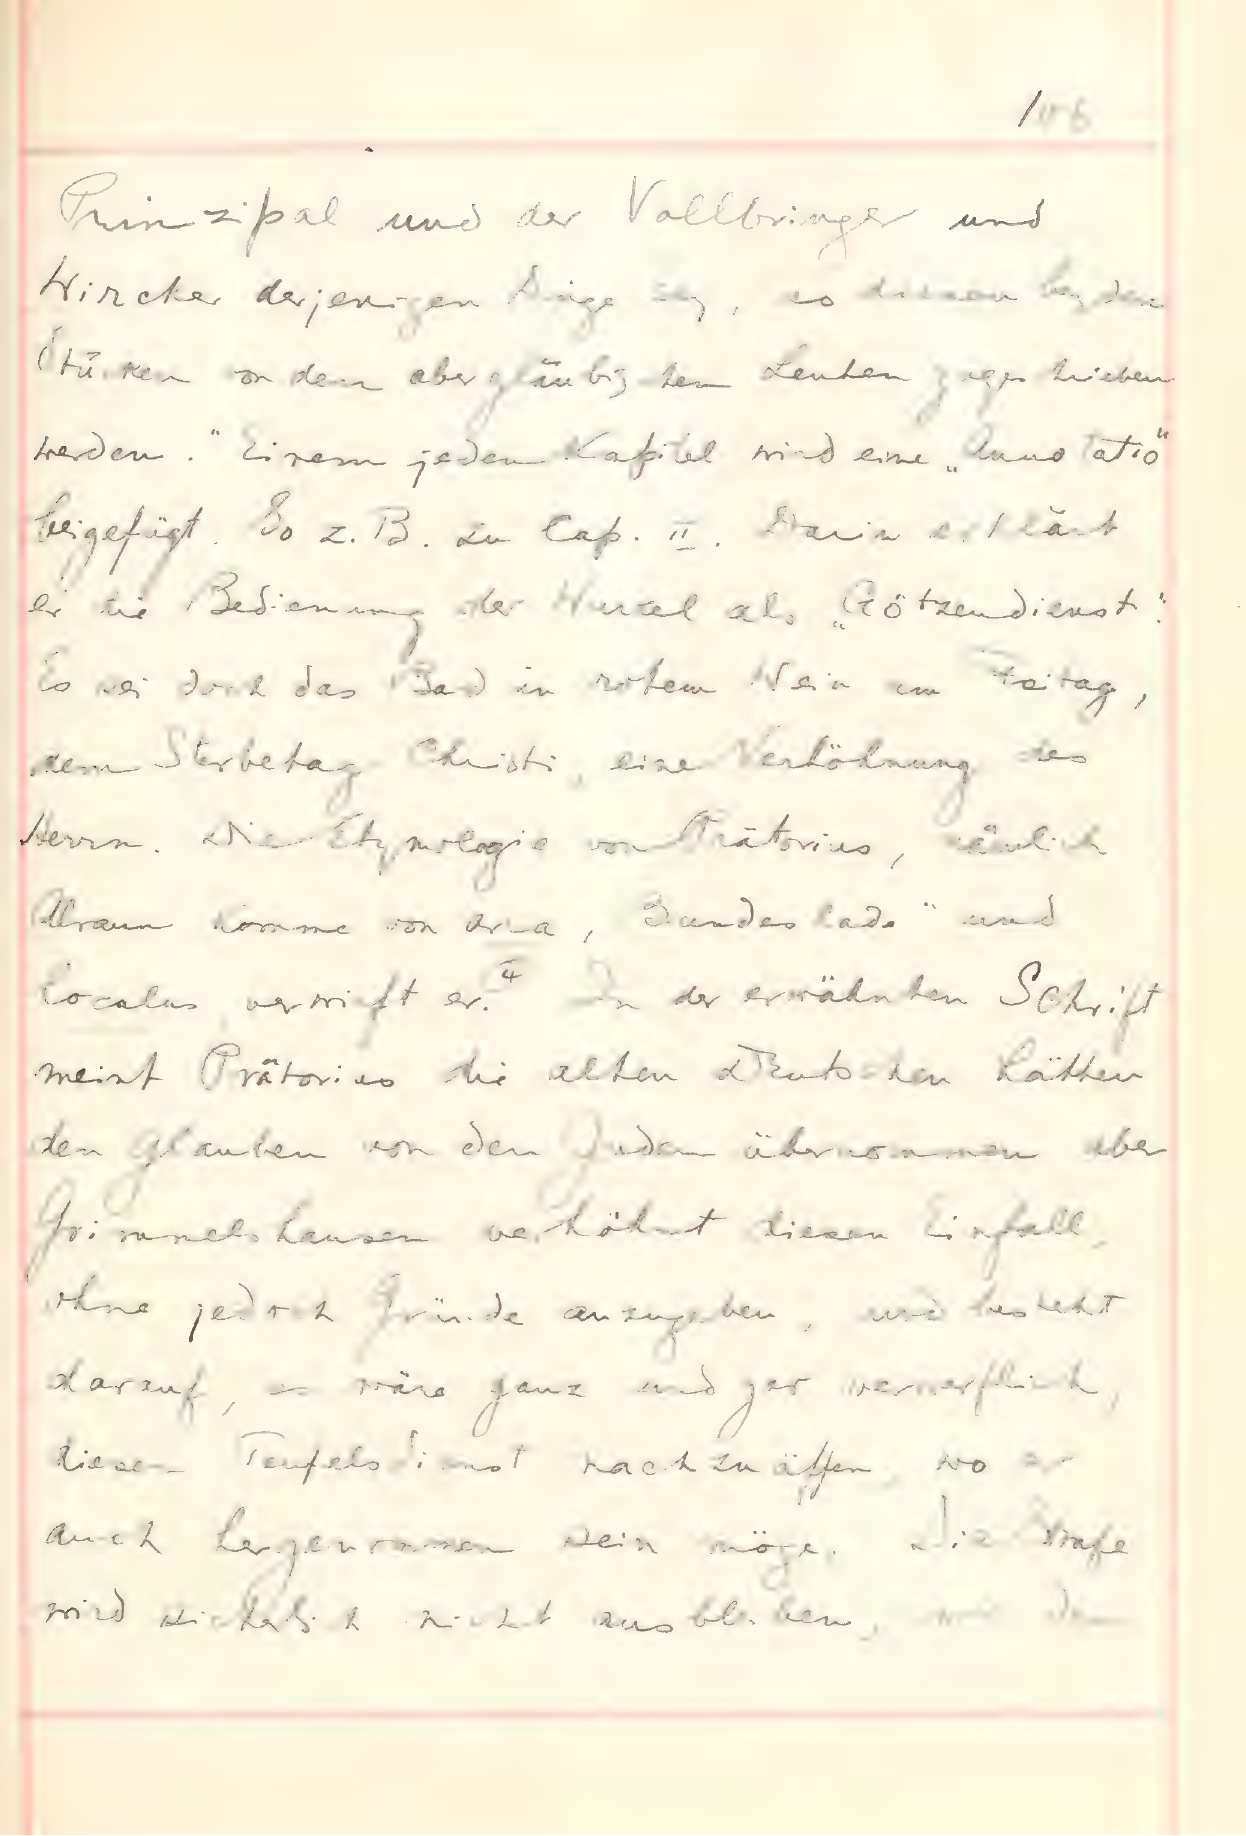 106
Prinzipal und der Vollbringer und
Wircker derjenigen Dinge sey, so diesen beyden
Stücken von dem abergläubischen Leuten zugeschrieben
werden." Einem jeden Kapitel wird eine „Annotatio"
beigefügt. So z. B. zu Cap. II. Darin erklärt
er die Bedienung der Wurzel als „Götzendienst".
Es sei doch das Bad in rotem Wein am Freitag,
dem Sterbetag Christi, eine Verhöhnung des
Herrn. Die Etymologie von Prätorius, nämlich
Alraun komme von , Bundeslade" und
verwirft er.4 In der erwähnten Schrift
meint Prätorius die alten Deutschen hätten
den Glauben von den Juden übernommen aber
Grimmelshausen verhöhnt diesen Einfall,
ohne jedoch Gründe anzugeben, und besteht
darauf, es wäre ganz und gar verwerflich,
diesen Teufelsdienst nachzuäffen, wo er
auch hergenommen sein möge. Die Strafe
wird sicherlich nicht ausbleiben,